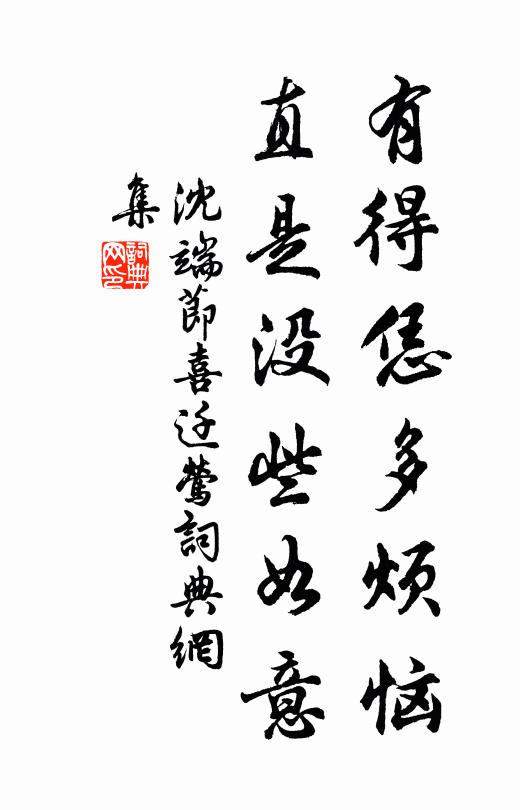 有得恁多烦恼
直是没些如意
沈端節喜迁鶯詞典網
集
詞典
网印